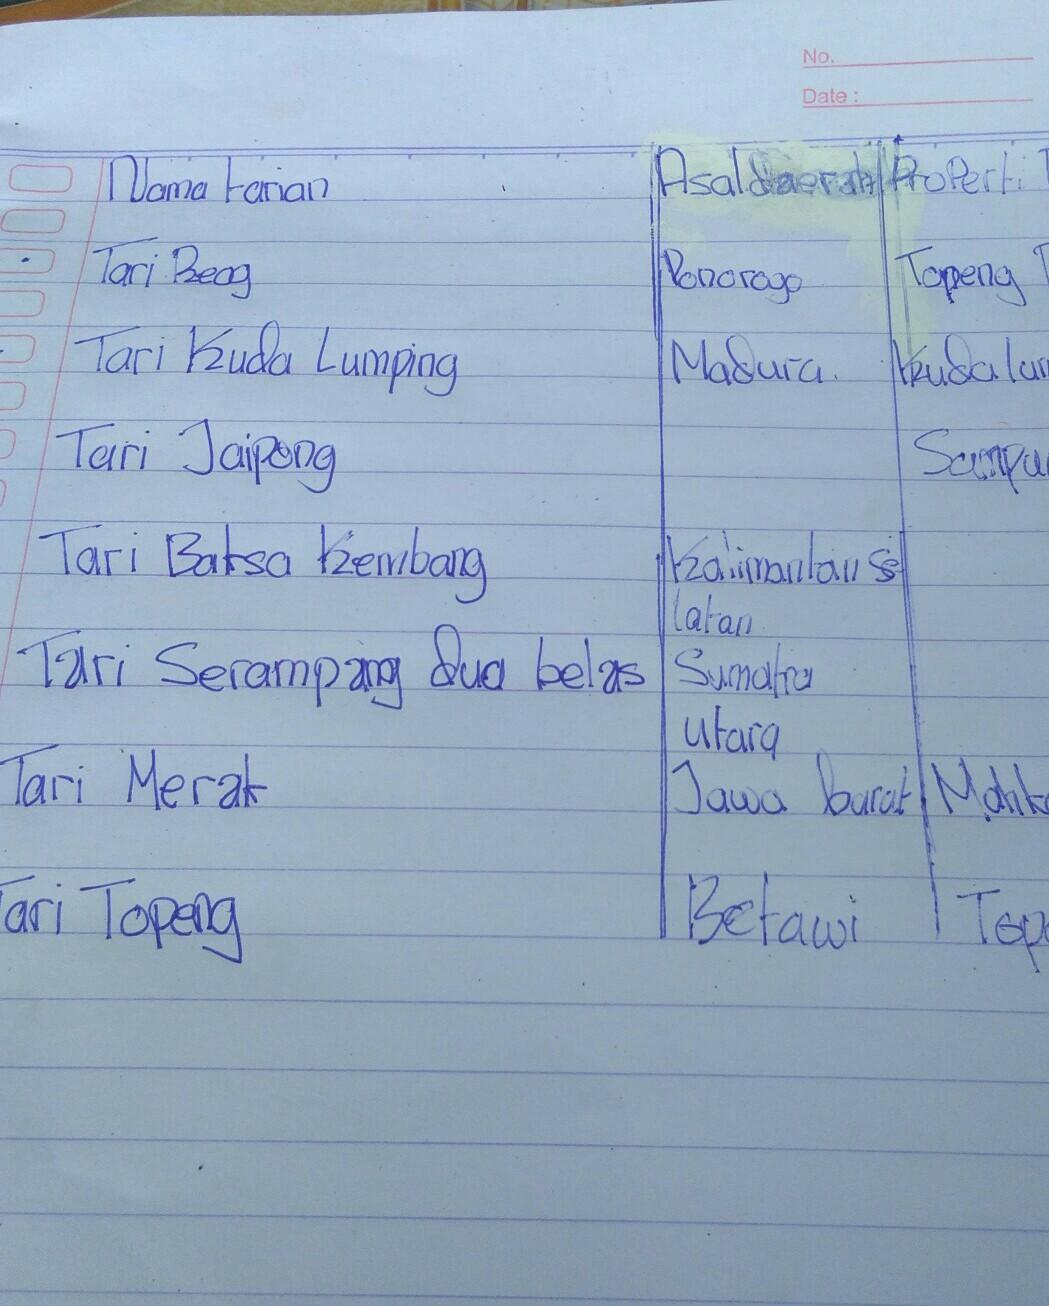 No.
Date :
Nama tarian Asal daerah Properti
Tari Reog Ponorogo Topeng
Tari Kuda Lumping Madura. Kuda lum
Tari Jaipong Sampu
Tari Baksa Kembang Kalimantan Se
latan
Tari Serampang dua belas Sumatra
utara
Tari Merak Jawa barat
Tari Topeng Betawi Tope